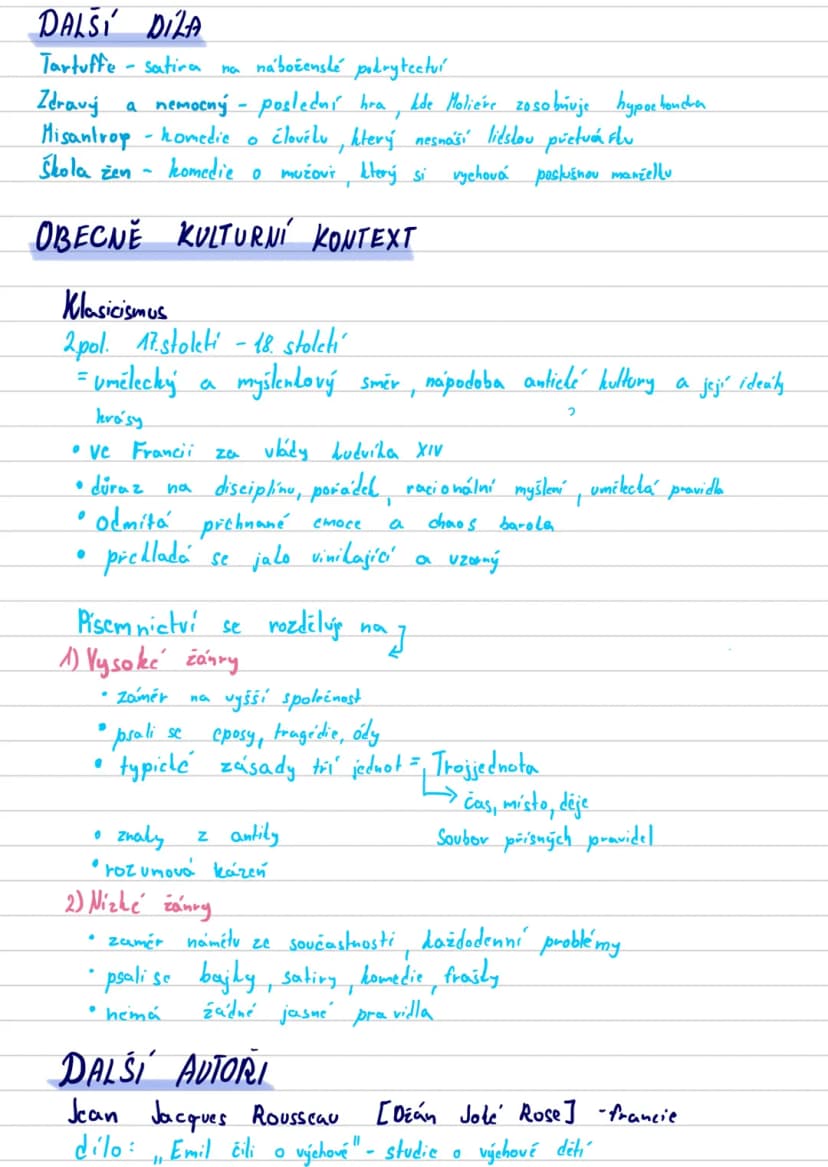 DALŠÍ DÍLA
Tartuffe - satira na náboženské pokrytectví
Zdravý a nemocný - poslední hra, kde Moliére zosobňuje hypochondra
Misantrop - komedie o člověku, který nesnáší lidskou přetvářku
Škola žen - komedie o mužovi, který si vychová poslušnou manželku
OBECNĚ KULTURNÍ KONTEXT
Klasicismus
2pol. 17. století - 18. století
= umělecký a myšlenkový směr, nápodoba antické kultury a její ideály
krásy
?
• ve Francii za vlády Ludvíka XIV
• důraz na disciplínu, pořádek, racionální myšlení, umělecká pravidla
• odmítá přehnané emoce a chaos baroka
• předkládá se jako vinikající a vzorný
Písemnictví se rozděluje na
1) Vysoké žánry
• záměr na vyšší společnost
• psali se eposy, tragédie, ódy
• typické zásady tří jednot = Trojjednota
čas, místo, děje
• znaky z antiky Soubor přísných pravidel
• rozumová kázeň
2) Nízké žánry
• záměr námětu ze součastnosti, každodenní problémy
• psali se bajky, satiry, komedie, frašky
• nemá žádné jasné pravidla
DALŠÍ AUTOŘI
Jean Jacques Rousseau [Džán Jaké Rose] - francie
dílo: „Emil čili o výchově" - studie o výchově dětí